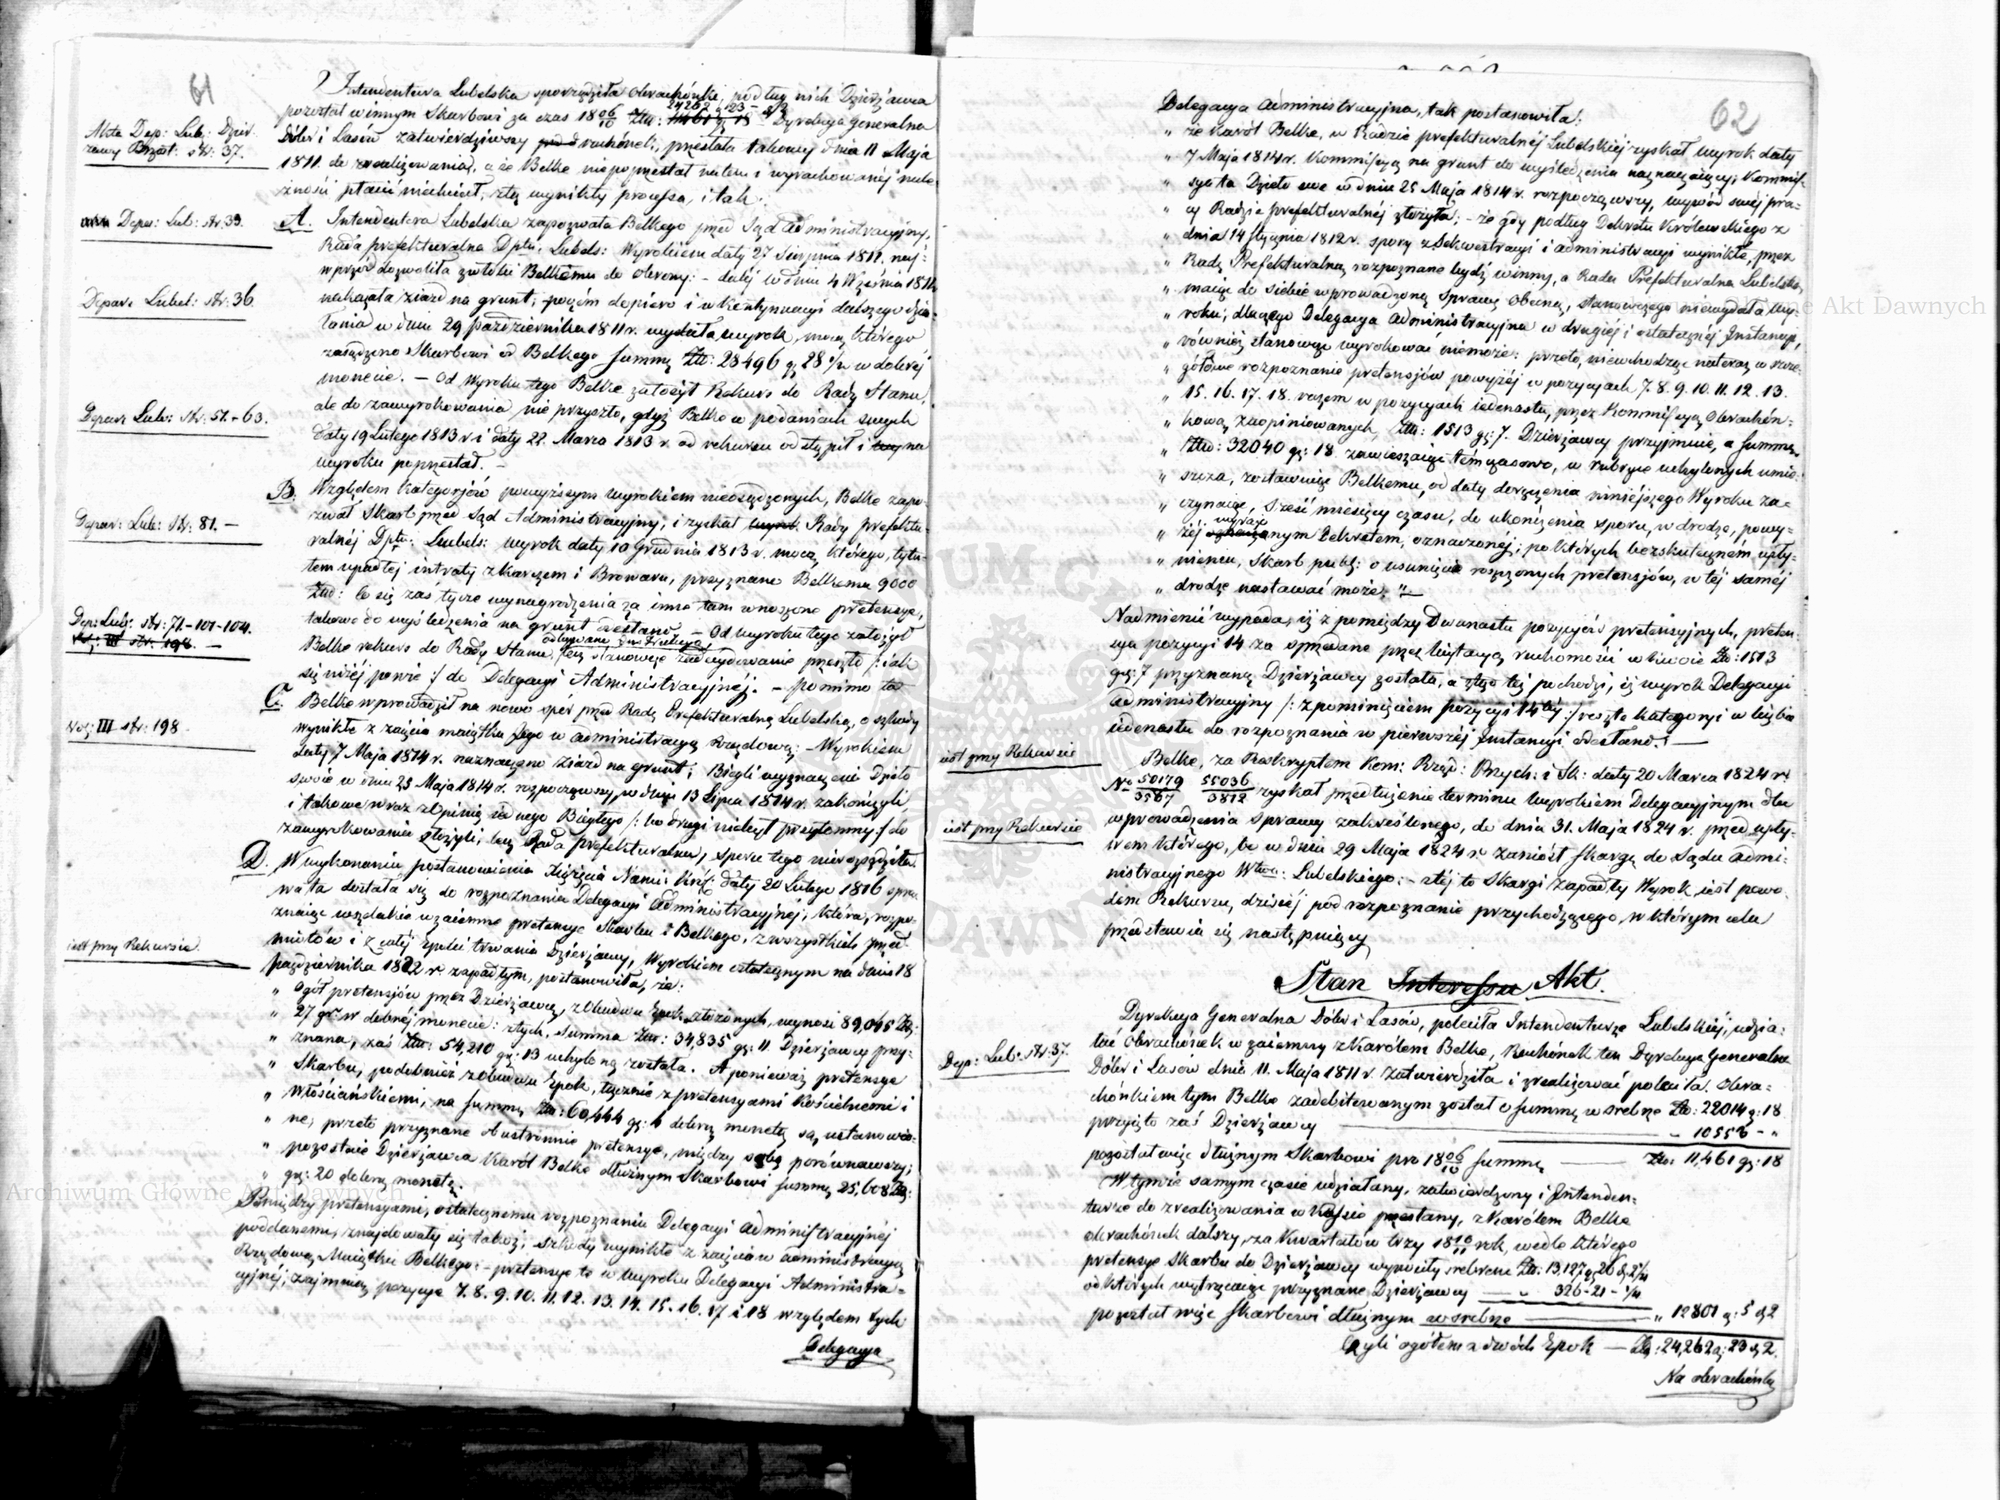 61
Intendentura Lubelska sporządziła obrachunki, podług nich Dzierżawca
24262 g 23 - 2
pozostał winnym Skarbowi za czas 18 06/10 Złw: 11461 g 18 Dyrekcya Generalna
Akta Dep: Lub: Dzier-
żawy Brzest. str. 37.
Dóbr i Lasów zatwierdziwszy rachunek, przesłała takowy dnia 11 Maja
1811. do zrealizowania, a że Belke nie poprzestał na tem i wyrachowanéj nale-
żności płacić niechciał, ztąd wynikły processa, i tak:
Depar: Lub: str. 33.
A. Intendentura Lubelska zapozwała Belkego przed Sąd administracyjny,
Rada prefekturalna Dptu. Lubels: Wyrokiem daty 27 Sierpnia 1811. naj-
wprzód dozwoliła zwłoki Belkemu do obrony: - daléj w dniu 4 Września 1811
Depart Lubel: str. 36
nakazała ziazd na grunt; poczém dopiero i w kontynuacyi dalszego dzia-
łania w dniu 29 października 1811 r. wydała wyrok, mocą którego
zasądzono Skarbowi od Belkego summę Złw: 28496 g 28 1/2 w dobréj
monecie. - Od Wyroku tego Belke założył Rekurs do Rady Stanu,
Depart Lub: str: 51. - 63.
ale do zawyrokowania nie przyszło, gdyż Belke w podaniach swych
daty 19 Lutego 1813 r i daty 22. Marca 1813 r. od rekursu odstąpił i na
wyroku poprzestał. -
B. Względem kategoryów powyższym wyrokiem nieosądzonych, Belke zapo-
Depar: Lub: Str: 81. -
zwał Skarb przed Sąd Administracyjny, i zyskał Rady prefektu-
ralnéj Dptu: Lubels: wyrok daty 10 Grudnia 1813 r. mocą którego, tytu-
łem upadłej intraty z karczem i Browaru, przyznano Belkemu 9000
Złw: Co się zaś tycze wynagrodzenia za inne tam wnoszone pretensye,
takowe do wyśledzenia na grunt odesłano. - Od wyroku tego założył
Dep: Lub: Str: 71-101-104.
Vol: III str: 198. -
Belke rekurs do Rady Stanu, lecz stanowcze zadecydowanie przeszło /: iak
się niżéj powie :/ do Delegacyi Administracyjnéj. - pomimo to
C. Belke wprowadził na nowo spór przed Radę Prefekturalną Lubelską, o szkody
Vol: III str: 198
wynikłe z zajęcia maiątku Jego w administracyą Rządową: - Wyrokiem
daty 7 Maja 1814 r. naznaczono ziazd na grunt; Biegli wyznaczeni Dzieło
swoie w dniu 25 Maja 1814 r. rozpocząwszy, w dniu 13 Lipca 1814 r. zakończyli,
i takowe wraz z Opinią iednego Biegłego /: bo drugi niebył przytomny :/ do
zawyrokowania złożyli, lecz Rada prefekturalna, sporu tego nierozsądziła.
D. W wykonaniu postanowienia Xięcia Namies: Król: daty 20 Lutego 1816 spra-
wa ta dostała się do rozpoznania Delegacyi administracyjnéj, która, rozpo-
znaiąc wszelkie wzaiemne pretensye Skarbu i Belkego, z wszystkich przed-
iest przy Rekursie.
miotów i z całéj Epoki trwania Dzierżawy, Wyrokiem ostatecznym na dniu 18
października 1822 r. zapadłym, postanowiła, że:
„ ogół pretensyów przez Dzierżawcę, z obudwu Epok złożonych, wynosi 89,045 Złp:
„ 27 gr w dobréj monecie: z tych, summa Złw: 34,835 gr: 11. Dzierżawcy przy-
„ znaną, zaś Złw: 54,210 gr: 13 uchyloną została. A ponieważ pretensye
„ Skarbu, podobnież z obudwu Epok, łącznie z pretensyami kościelnemi i
„ Włościańskiemi, na summę Złw: 60,444 gr: 1 dobrą monetą są ustanowio-
„ ne, przeto przyznane obustronnie pretensye, między sobą porównawszy,
„ pozostaie Dzierżawca Karól Belke dłużnym Skarbowi summę 25,608 Złp:
„ gr: 20 dobrą monetą.
Pomiędzy pretensyami, ostatecznemu rozpoznaniu Delegacyi administracyjnéj
poddanemi, znajdowały się także, szkody wynikłe z zajęcia w administracyą
Rządową Maiątku Belkego: - pretensye te w Wyroku Delegacyi Administra-
cyjnéj, zajmuią pozycye 7. 8. 9. 10. 11. 12. 13. 14. 15. 16. 17 i 18 względem tych
Delegacya
62
Delegacya administracyjna, tak postanowiła:
„ że Karól Belke, w Radzie prefekturalnéj Lubelskiéj zyskał wyrok daty
„ 7 Maja 1814 r. Kommissyą na grunt do wyśledzenia naznaczaiący; Kommis-
„ sya ta Dzieło swe w dniu 25 Maja 1814 r. rozpocząwszy, wywód swéj pra-
„ cy Radzie prefekturalnéj złożyła; - że gdy podług Dekretu Królewskiego z
„ dnia 14 Stycznia 1812 r. spory z Sekwestracyi i administracyi wynikłe, przez
„ Radę Prefekturalną rozpoznane bydź winny, a Rada Prefekturalna Lubelska,
„ maiąc do siebie wprowadzoną sprawę obecną, stanowczego niewydała wy-
„ roku, dlaczego Delegacya Administracyjna w drugiéj i ostatecznéj Instancyi,
„ równiéż stanowczo wyrokować niemoże: przeto, niewchodząc na teraz w szcze-
„ gółowe rozpoznanie pretensyów powyżéj w pozycyach 7. 8. 9. 10. 11. 12. 13.
„ 15. 16. 17. 18. razem w pozycyach iedenastu, przez Kommissyą Obrachun-
„ kową zaopiniowanych, Złw: 1513 gr: 7. Dzierżawcy przyjmuie, a summę
„ Złw: 32040 gr: 18. zawieszaiąc tymczasowo, w rubryce uchylonych umie-
„ szcza, zostawuiąc Belkemu, od daty doręczenia niniejszego Wyroku za-
„ czynaiąc, sześć miesięcy czasu, do ukończenia sporu, w drodze, powy-
wyraż
„ żéj onym Dekretem, oznaczonéj; po których bezskutecznem upły-
„ nieniu, Skarb publ: o usunięcie rzeczonych pretensyów, w téj saméj
„ drodze nastawać może. "
Nadmienić wypada, iż z pomiędzy Dwunastu pozycyów pretensyjnych, preten-
sya pozycyi 14 za sprzedane przez licytacyą ruchomości w kwocie Złw: 1513
gr: 7 przyznaną Dzierżawcy została, a ztąd téż pochodzi, iż wyrok Delegacyi
administracyjnéj /: z pominięciem pozycyi 14téj :/ resztę kategoryi w liczbie
iedenastu do rozpoznania w pierwszéj Instancyi odesłano. -
iest przy Rekursie
Belke, za Reskryptem Kom: Rząd: Przych: i Sk: daty 20 Marca 1824 r.
No 50179/3567 55036/3812 zyskał przedłużenie terminu Wyrokiem Delegacyjnym dla
iest przy Rekursie
wprowadzenia sprawy zakreślonego, do dnia 31. Maja 1824 r. przed upły-
wem którego, bo w dniu 29 Maja 1824 r. zaniósł skargę do Sądu admi-
nistracyjnego Wtwa: Lubelskiego: - z téj to Skargi zapadły Wyrok iest powo-
dem Rekursu, dzisiéj pod rozpoznanie przychodzącego, w którym celu
przedstawia się następuiący
Stan Interessu Akt.
Dyrekcya Generalna Dóbr i Lasów, poleciła Intendenturze Lubelskiéj, udzia-
łać obrachunek wzaiemny z Karólem Belke, Rachunek ten Dyrekcya Generalna
Dep: Lub: str. 37.
Dóbr i Lasów dnia 11. Maja 1811 r. zatwierdziła i zrealizować poleciła. Obra-
chunkiem tym Belke zadebitowanym został o summę w srebrze Złw: 22014 g: 18
przyięto zaś Dzierżawcy „ 10553 - „
pozostał więc dłużnym Skarbowi pro 18 06/10 summę Złw: 11,461 gr: 18
W tymże samym czasie udziałany, zatwierdzony i Intenden-
turze do zrealizowania w kassie przesłany, z Karólem Belke
obrachunek dalszy, za kwartałów trzy 18 10/11 rok, wedle którego
pretensye Skarbu do Dzierżawcy wynosiły srebrem Złw: 13,127 g 26 d 2 1/4
od których wytrącaiąc przyznane Dzierżawcy „ 326 - 21 - 1/4
pozostał więc Skarbowi dłużnym w srebrze „ 12801 g: 5 d 2
Czyli ogółem z dwóch Epok - Złw: 24,262 g: 23 d 2.
Na obrachunku
Archiwum Główne Akt Dawnych
Archiwum Główne Akt Dawnych